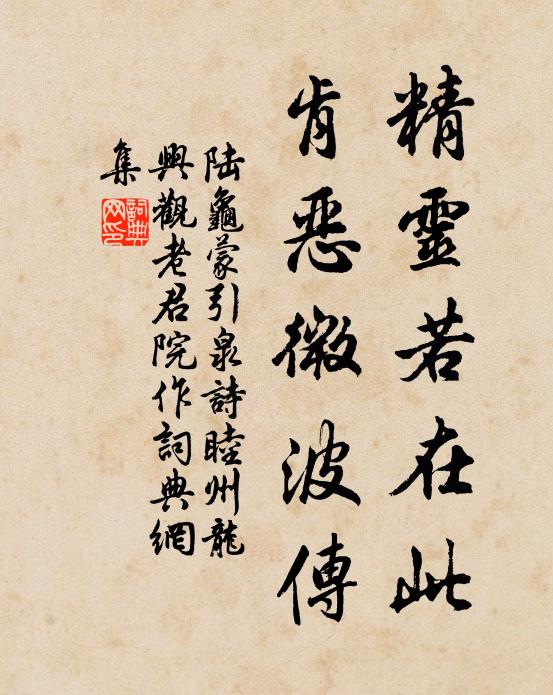 精靈若在此
肯惡微波傳
陸龜蒙引泉詩睦州龍
興觀老君院作詞典網
集
詞典
网印